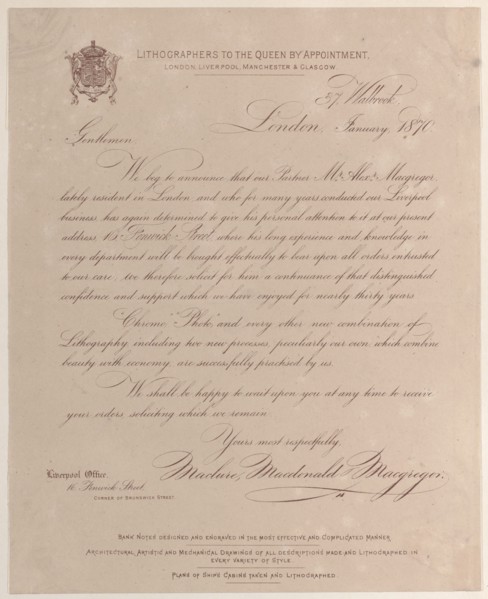 LITHOGRAPHERS TO THE QUEEN BY APPOINTMENT,
LONDON, LIVERPOOL, MANCHESTER & GLASGOW.
37, Walbrook.
London, January, 1870.
Gentlemen
We beg to announce that our Partner Mr. Alexr. Macgregor
lately resident in London and who for many years conducted our Liverpool
business has again determined to give his personal attention to it at our present
address Fenwick Street, where his long experience and knowledge in
every department will be brought effectually to bear upon all orders entrusted
to our care; we therefore solicit for him a continuance of that distinguished
confidence and support which we have enjoyed for nearly thirty years
"Chromo," "Photo," and every other new combination of
Lithography including two new processes, peculiarly our own, which combine
beauty with economy, are successfully practised by us.
We shall be happy to wait upon you at any time to receive
your orders, soliciting which we remain
Yours most respectfully,
Maclure, Macdonald, Macgregor.
Liverpool Office.
16, Fenwick Street
CORNER OF BRUNSWICK STREET.
BANK NOTES DESIGNED AND ENGRAVED IN THE MOST EFFECTIVE AND COMPLICATED MANNER
ARCHITECTURAL, ARTISTIC AND MECHANICAL DRAWINGS OF ALL DESCRIPTIONS MADE AND LITHOGRAPHED, IN
EVERY VARIETY OF STYLE.
PLANS OF SHIPS CABINS TAKEN AND LITHOGRAPHED.